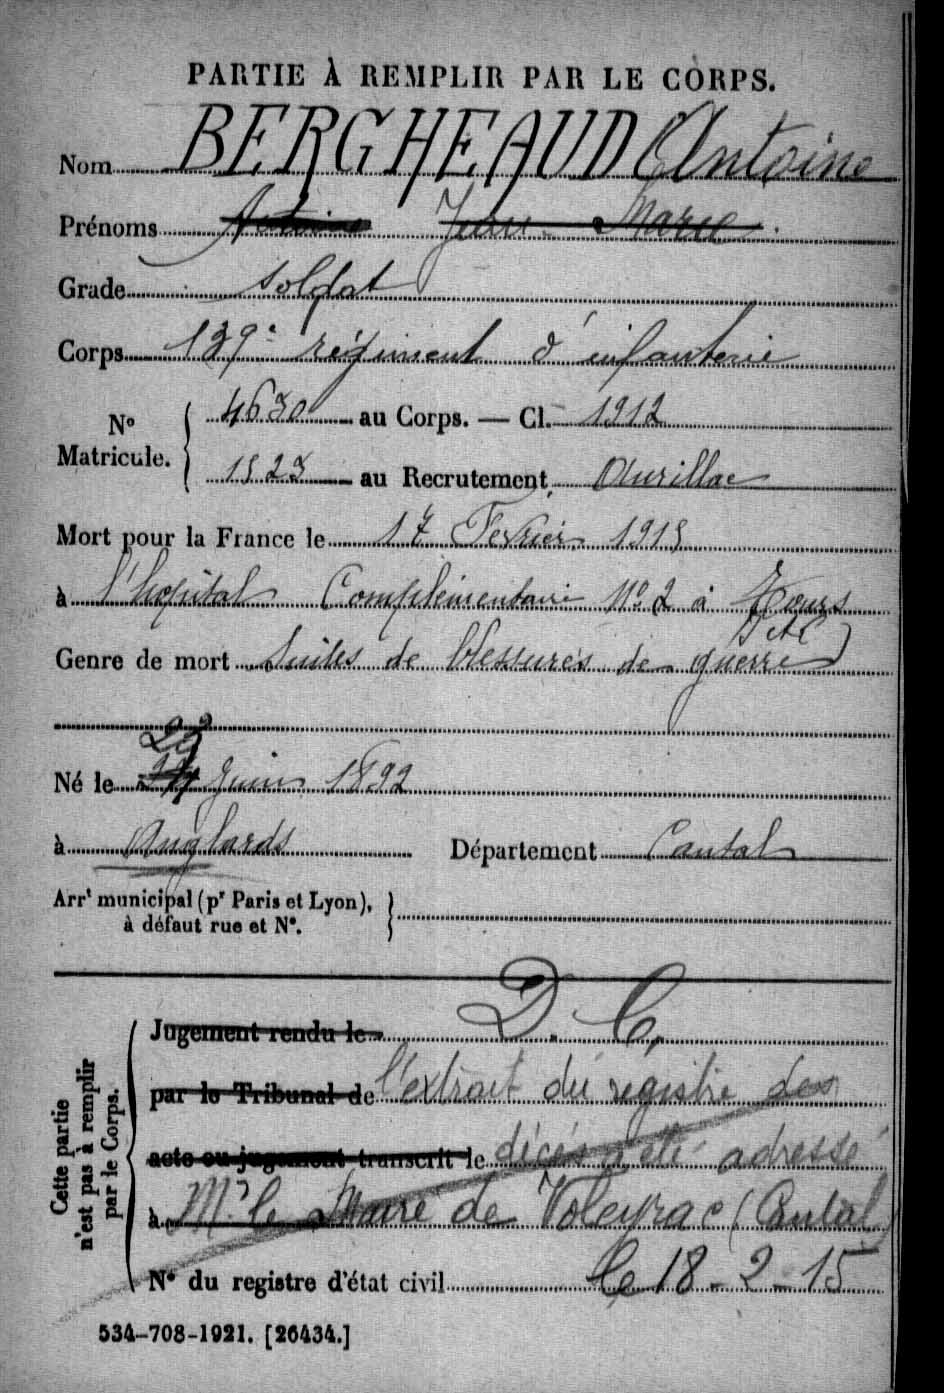 PARTIE À REMPLIR PAR LE CORPS.
Nom BERGHEAUD Antoine
Prénoms Antoine Jean Marie
Grade soldat
Corps 139e régiment d'infanterie
No Matricule. { 4630 au Corps. — Cl. 1912
1523 au Recrutement Aurillac
Mort pour la France le 17 Fevrier 1915
à l'hopital Complémentaire No 2 à Tours
Genre de mort Suites de blessures de guerre
22
Né le Juin 1892
à Anglards Département Cantal
Arrt municipal (pr Paris et Lyon), à défaut rue et No. }
Cette partie n'est pas à remplir par le Corps.
Jugement rendu le D. C.
par le Tribunal de l'extrait du registre des
acte ou jugement transcrit le décès a été adressé
à Mr le Maire de Voleyrac (Cantal)
No du registre d'état civil le 18-2-15
534-708-1921. [26434.]